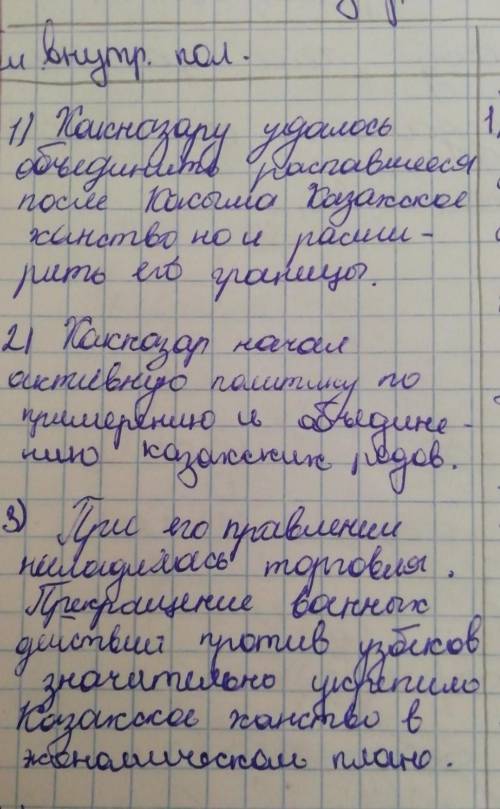 и внутр. пол.
1) Хакназару удалось
объединить распавшееся
после Касыма Казахское
ханство но и расши-
рить его границы.
2) Хакназар начал
активную политику по
примерению и объедине-
нию казахских родов.
3) При его правлении
наладилась торговля.
Прекращение военных
действий против узбеков
значительно укрепило
Казахское ханство в
экономическом плане.
1)